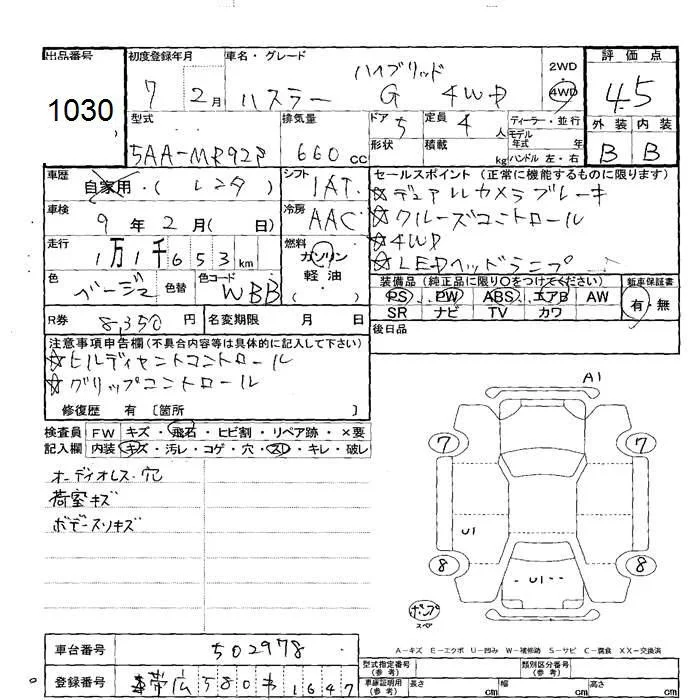 出品番号
1030
初度登録年月
7年 2月
車名・グレード
ハイブリッド
ハスラー G 4WD
2WD
4WD
評価点
4.5
外装 内装
B B
型式
5AA-MR92S
排気量
660 cc
ドア 5
形状
定員 4 人
積載 kg
ディーラー・並行
モデル年式 年式
ハンドル 左・右
車歴
自家用・(レンタ)
シフト
IAT
車検
9年2月( 日)
冷房
AAC
走行
1万1千653km
燃料
ガソリン
軽油
( ・ )
色
ベージュ
色替
色コード
WBB
R券 8,350円
名変期限 月 日
セールスポイント(正常に機能するものに限ります)
☆デュアルカメラブレーキ
☆クルーズコントロール
☆4WD
☆LEDヘッドランプ
装備品(純正品に限り○をつけてください)
PS PW ABS エアB AW
SR ナビ TV カワ
新車保証書
有・無
後日品
注意事項申告欄(不具合内容等は具体的に記入して下さい)
☆ヒルディセントコントロール
☆グリップコントロール
修復歴 有 〔箇所 〕
検査員記入欄
FW キズ・飛石・ヒビ割・リペア跡・×要
内装 キズ・汚レ・コゲ・穴・スレ・キレ・破レ
オーディオレス穴
荷室キズ
ボデースリキズ
A1
7 7
U1
8 8
U1
ポンプ
スペア
A-キズ E-エクボ U-凹み W-補修跡 S-サビ C-腐食 XX-交換済
車台番号 502978
登録番号 帯広580 1647
型式指定番号
(参考)
類別区分番号
(参考)
車庫証明用
(参考)
長さ cm
幅 cm
高さ cm